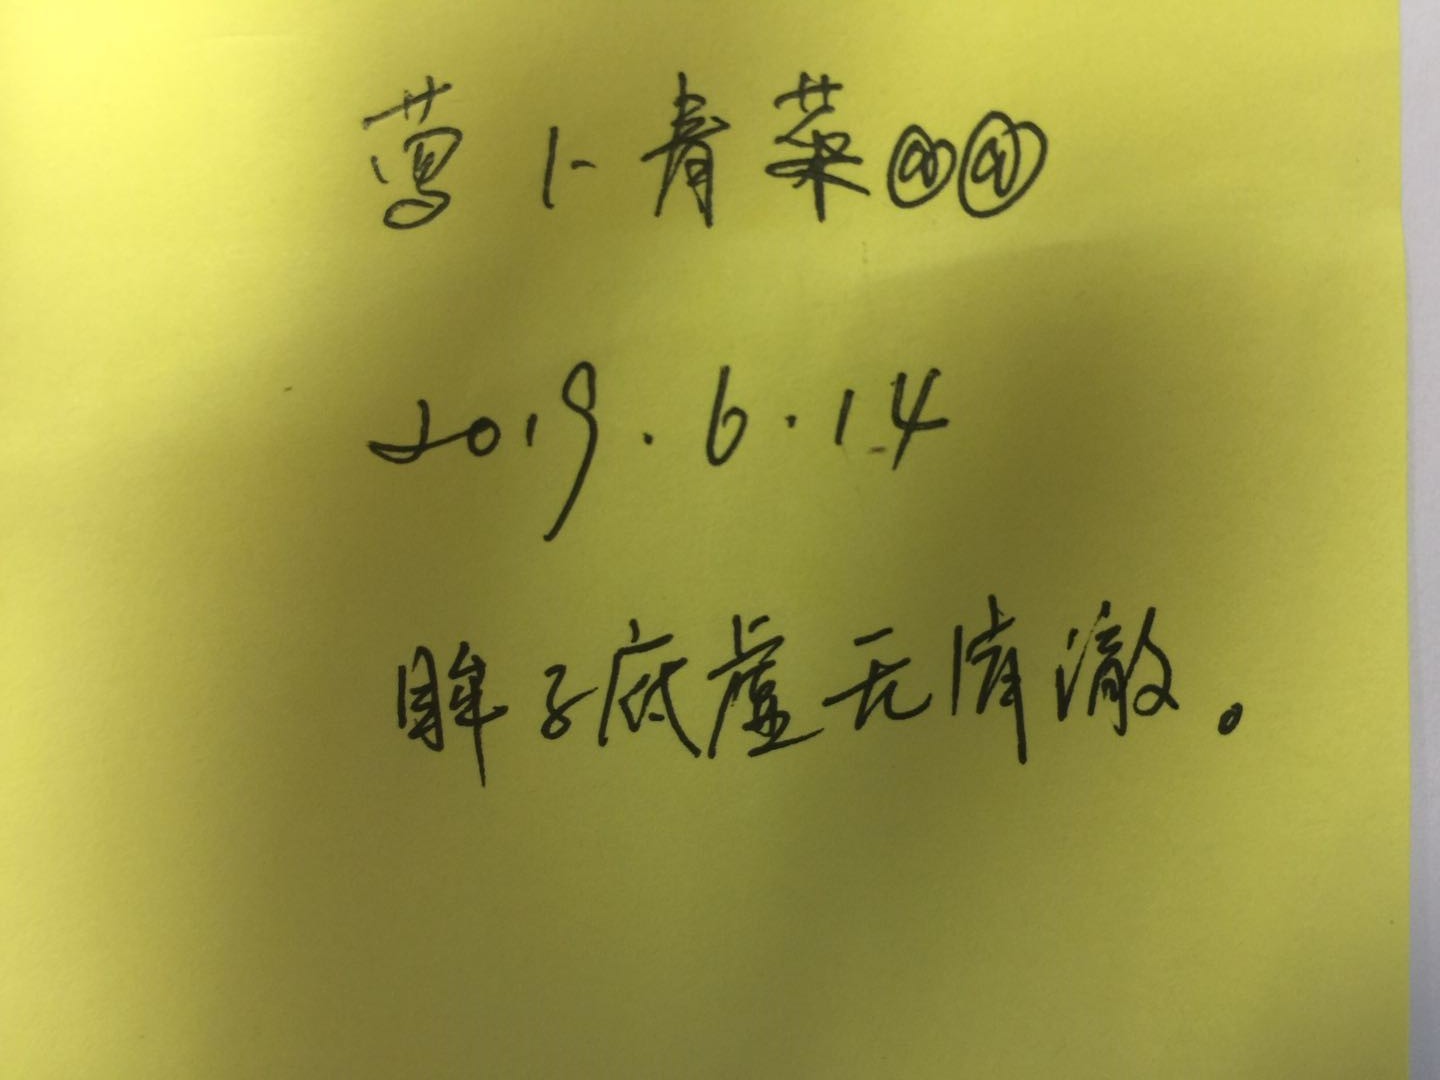 萝卜青菜@@
2019.6.14
眸子底虚无清澈。